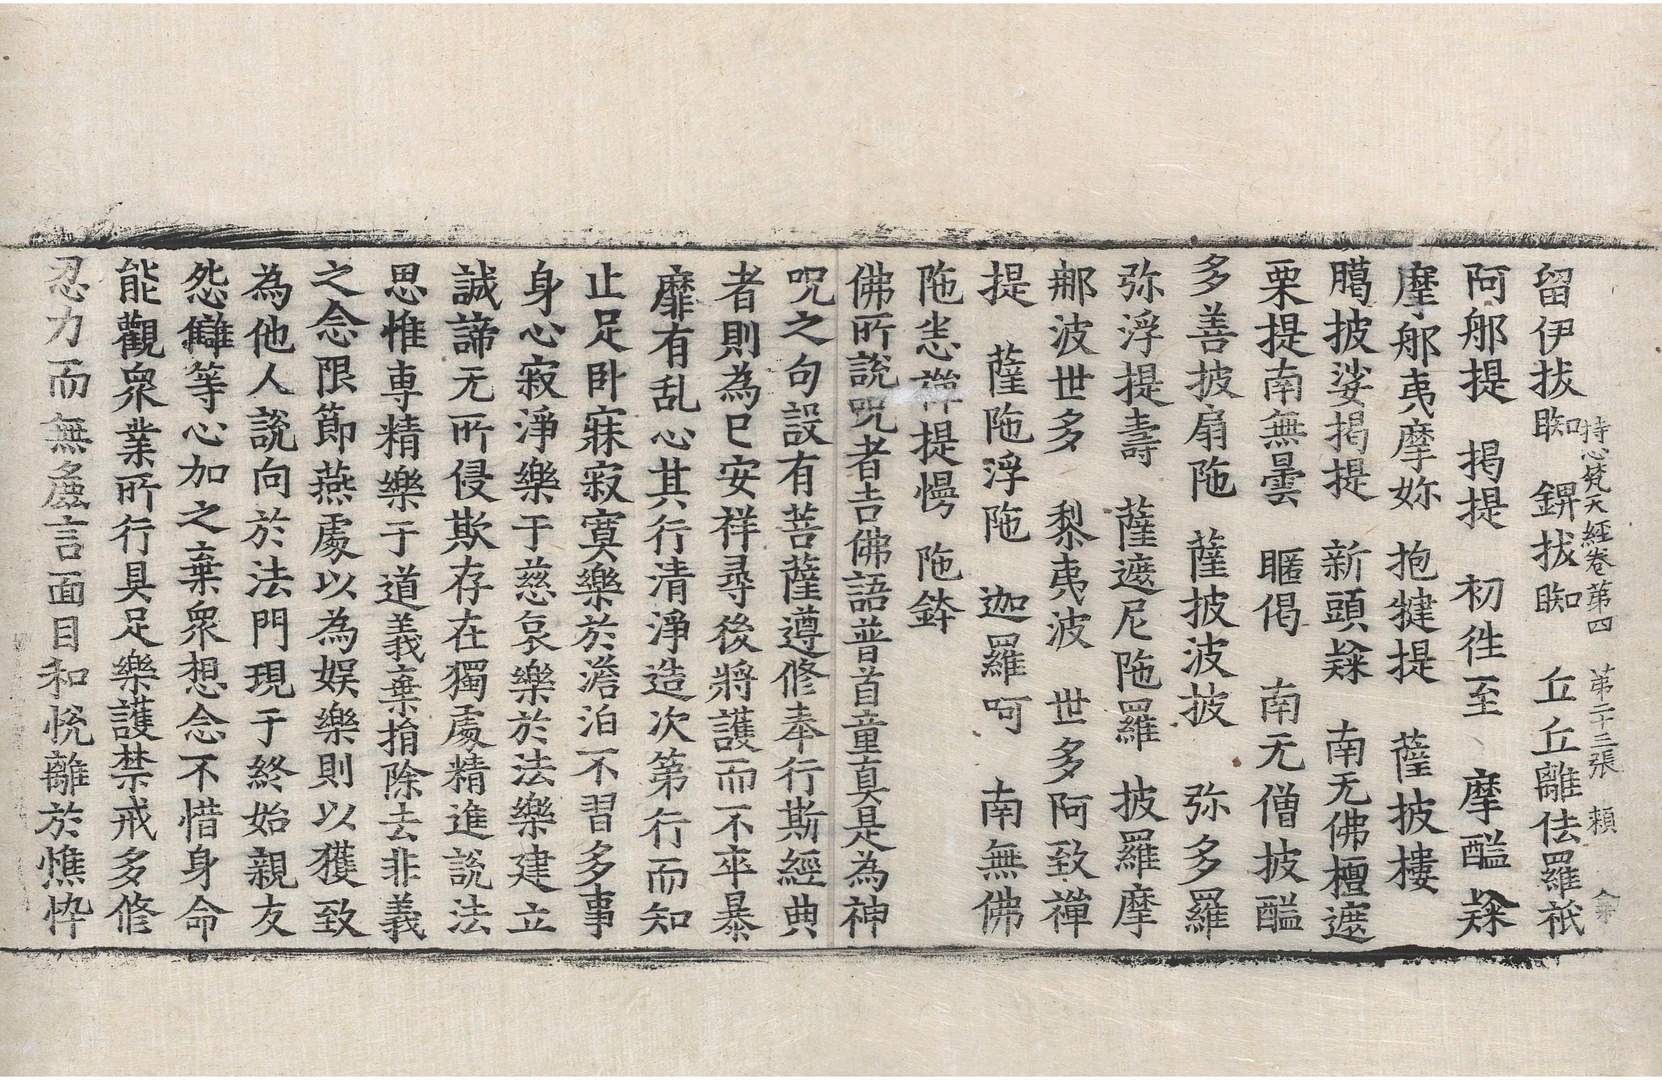 持心梵天經卷第四　第二十三張　賴
留伊拔䀼　錍拔䀼　丘丘離佉羅祇
阿那提　揭提　初往至　摩醯
摩那夷摩妳　抱揵提　薩披摟
臈披娑揭提　新頭　南无佛檀遮
栗提南無曇　暱偈　南无僧披醯
多善披扇陁　薩披波披　弥多羅
弥浮提壽　薩遮尼陁羅　披羅摩
那波世多　黎夷波　世多阿致禪
提　薩陁浮陁　迦羅呵　南無佛
陁恙禪提慢　陁鉢
佛所說呪者吉佛語普首童真是為神
呪之句設有菩薩遵修奉行斯經典
者則為已安祥尋後將護而不卒暴
靡有乱心其行清淨造次第行而知
止足卧寐寂寞樂於澹泊不習多事
身心寂淨樂于慈哀樂於法樂建立
誠諦无所侵欺存在獨處精進說法
思惟専精樂于道義棄捐除去非義
之念限節燕處以為娛樂則以獲致
為他人說向於法門現于終始親友
怨讎等心加之棄衆想念不惜身命
能觀衆業所行具足樂護禁戒多修
忍力而無麁言面目和悅離於憔悴